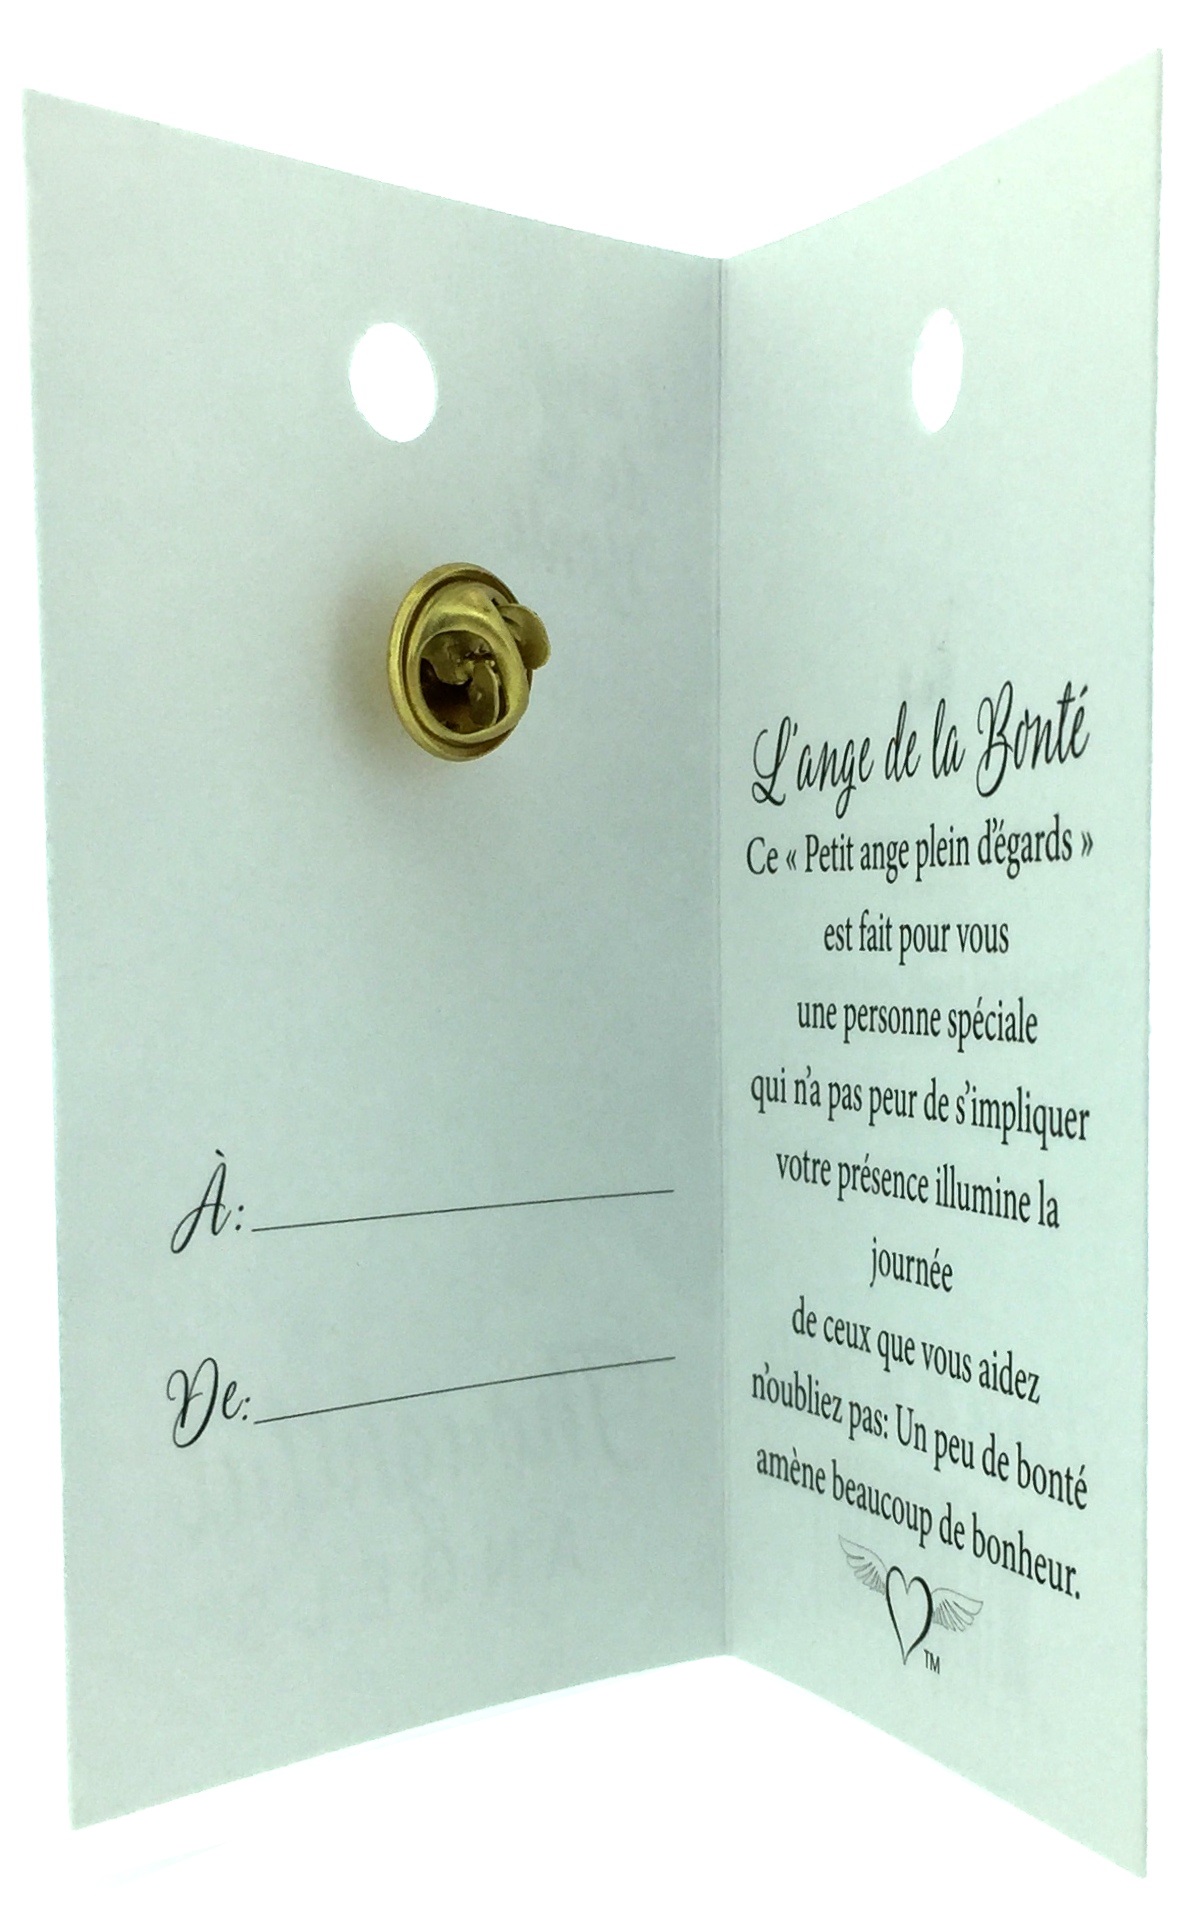 À:
De:
L'ange de la Bonté
Ce « Petit ange plein d'égards »
est fait pour vous
une personne spéciale
qui n'a pas peur de s'impliquer
votre présence illumine la
journée
de ceux que vous aidez
n'oubliez pas: Un peu de bonté
amène beaucoup de bonheur.
TM